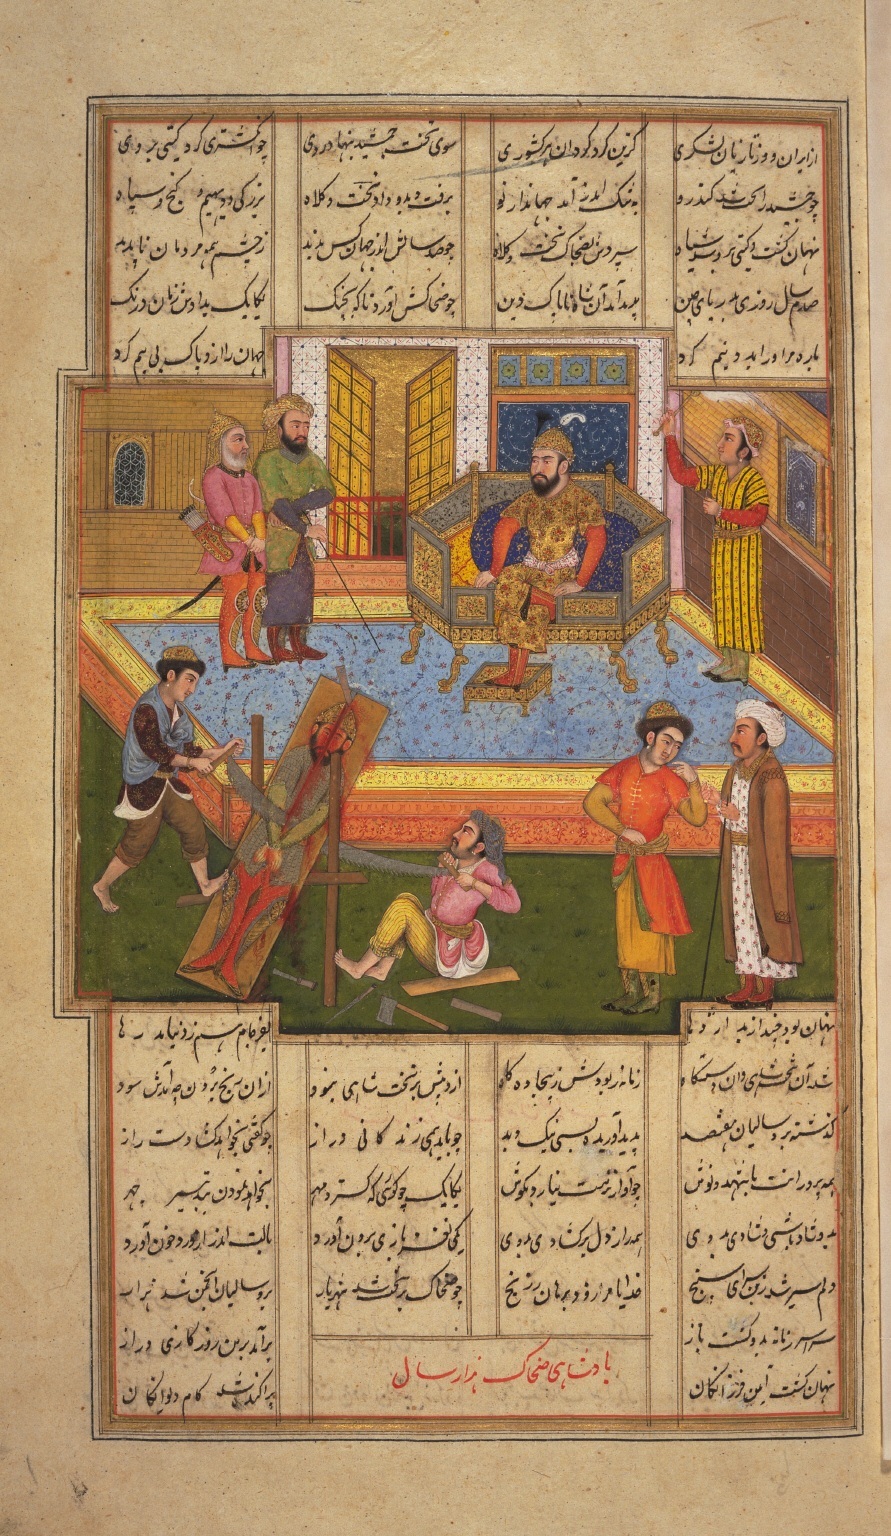 از ایران و وز تازیان لشکری گزین کرد گردان هر کشوری سوی تخت جمشید بنهاد روی چو انگشتری کرد گیتی بروی
چو جمشید را بخت شد کندرو به تنگ اندر آمد جهاندار نو برفت و بدو داد تخت و کلاه بزرگی و دیهیم و گنج و سپاه
نهان گشت و گیتی برو شد سیاه سپردش بضحاک تخت و کلاه چو صد سالش اندر جهان کس ندید ز چشم همه مردمان ناپدید
صدم سال روزی بدریای چین پدید آمد آن شاه ناپاک دین چو ضحاکش آورد ناگه بچنگ یکایک ندادش زمان درنگ
باره مر او را بدو نیم کرد جهان را ازو پاک بی بیم کرد
نهان بود چند از بد اژدها بفرجام هم زو نیامد رها
شد آن تخت شاهی و آن دستگاه زمانه ربودش چو بیجاده کاه ازو بیش بر تخت شاهی نبود از آن رنج بردن چه آمدش سود
گذشته برو سالیان هفتصد پدید آوریده بسی نیک و بد چو باید همی زندگانی دراز چو گیتی نخواهد گشادنت راز
همی پروراندت با شهد و نوش جز آواز نرمت نیارد بگوش یکایک چو گویی که گسترد مهر نخواهد نمودن ببد نیز چهر
بدو شاد باشی و شادی بدوی همه راز دل برگشادی بدوی یکی نغز بازی برون آورد بدلت اندر از درد خون آورد
دلم سیر شد زین سرای سپنج خدایا مرا زود برهان ز رنج چو ضحاک بر تخت شد شهریار برو سالیان انجمن شد هزار
سراسر زمانه بدو گشت باز برآمد برین روزگاری دراز
پادشاهی ضحاک هزار سال
نهان گشت آیین فرزانگان پراکنده شد کام دیوانگان